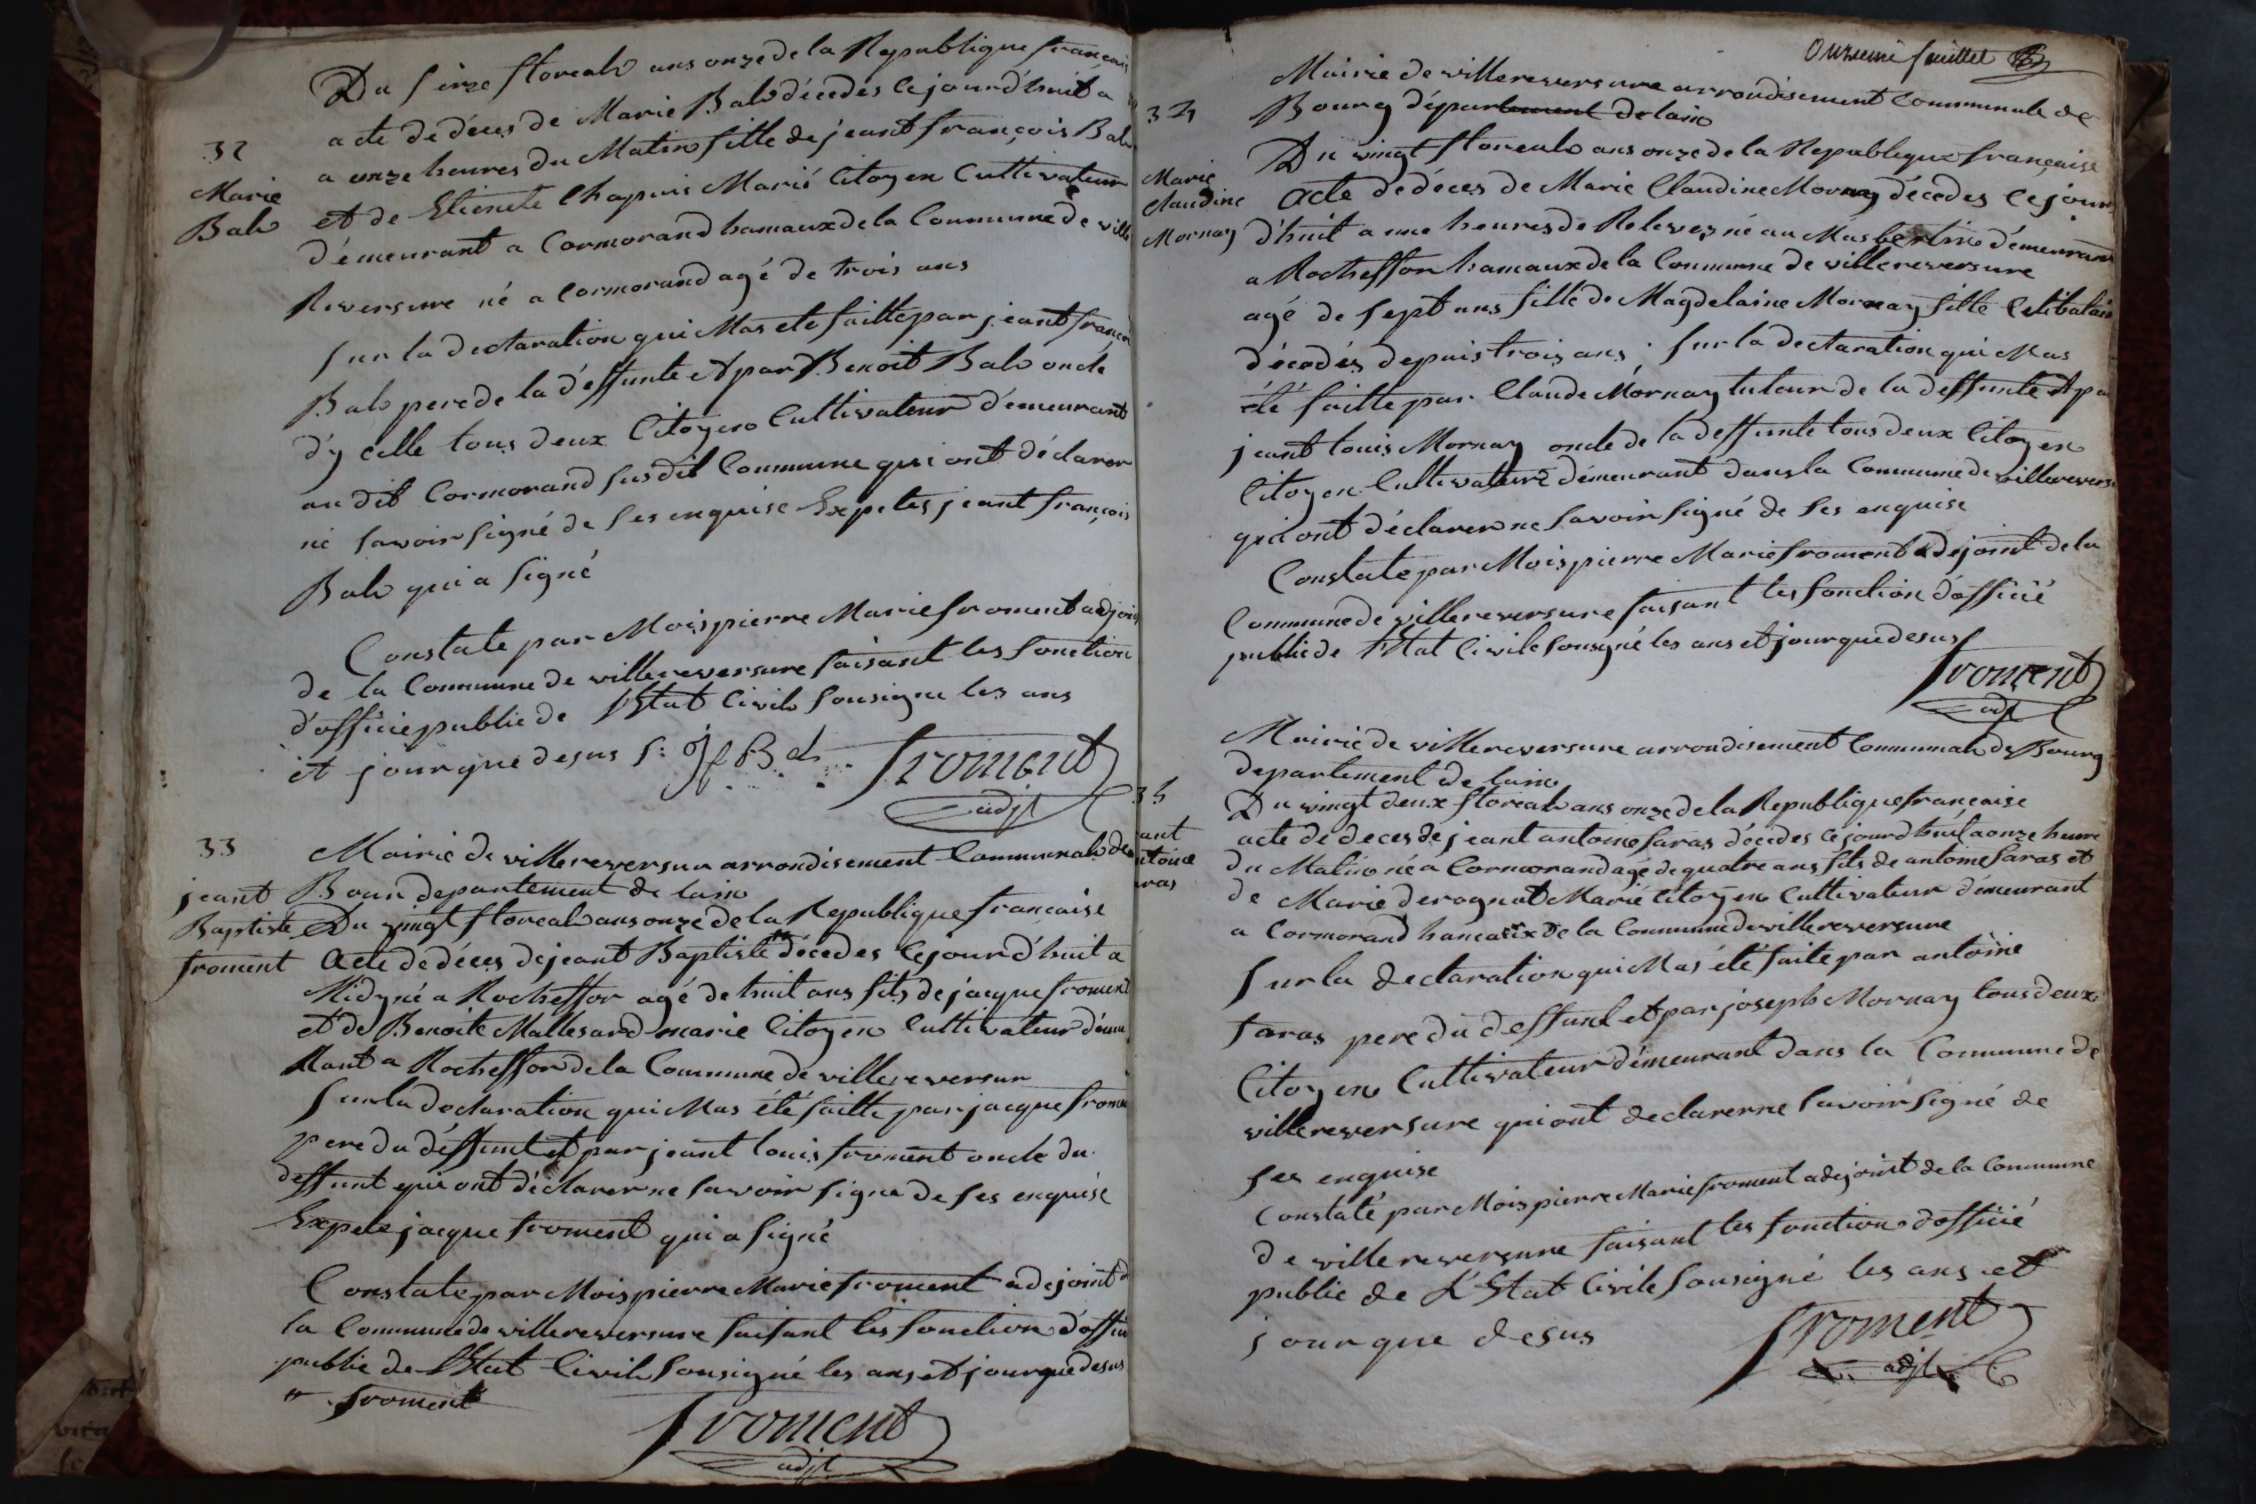 Du seize floreal ans onze de la Republique francais
acte de déces de Marie Bal décedes ce jourd'huit a
a onze heures du Matin fille de jeant françois Bal
et de Etienete Chapuis Marié Citoyen Cultivateur
d'émeurant a Cormorand hamaux de la Commune de ville
Reversure né a Cormorand agé de trois ans
32
Marie
Bal
sur la declaration qui Mas ete faitte par jeant françois
Bal pere de la d'effunte et par Benoit Bal oncle
d'y celle tous deux Citoyen Cultivateur d'émeurant
au dit Cormorand susdit Commune qui ont déclarer
ne savoir signé de ses enquise Expetes jeant françois
Bal qui a signé
Constate par Mois pierre Marie froment adjoin
de la Commune de villereversure faisant les fonction
d'officie public de l'Etat Civil sousigne les ans
et jour que desus s: Jf Bal froment
adjt
33
jeant
Baptiste
froment
Mairie de villereversur arrondisement Communal de
Bour departement de lain
Du vingt floreal ans onze de la Republique francaise
Acte de déces de jeant Baptiste décedes ce jour d'huit a
Midy né a Rocheffor agé de huit ans fils de jacque froment
et de Benoite Mallesard marie Citoyen Cultivateur d'émeu
Rant a Rocheffor de la Commune de villereversur
sur la declaration qui Mas été faitte par jacque frome
pere du déffunt et par jeant louis froment oncle du
deffunt qui ont déclarer ne savoir signe de ses enquise
Expete jacque froment qui a signé
Constate par Mois pierre Marie froment adejoint d
la Commune de villereversure faisant les fonction d'offici
public de l'Etat Civil sousigné les ans et jour que desus
froment
froment
adjt
Onzieme feuillet
34
Marie
claudine
Mornay
Mairie de villereversure arrondisement Communale de
Bourg département de lain
Du vingt floreal ans onze de la Republique française
Acte de déces de Marie Claudine Mornay décedes ce jour
d'huit a une heures de Relevez né au Mas bertin d'émeurant
a Rocheffor hamaux de la Commune de villereversure
agé de sept ans fille de Magdelaine Mornay fille Celibatair
décedés depuis trois ans. sur la declaration qui Mas
été faitte par Claude Mornay tuteur de la deffunte et pa
jeant louis Mornay oncle de la deffunte tous deux Citoyen
Citoyen Cultivateur d'émeurant dans la Commune de villerevers
qui ont déclarer ne savoir signé de ses enquise
Constate par Mois pierre Marie froment adejoint de la
Commune de villereversure faisant les fonction d'officié
public de l'Etat Civile sousigné les ans et jour que desus
froment
adjt
35
eant
ntoine
aras
Mairie de villereversure arrondisement Communal de Bourg
departement de lain
Du vingt deux floreal ans onze de la Republique française
acte de deces de jeant antoine faras décedes ce jourd'huit a onze heure
du Matin né a Cormorand agé de quatre ans fils de antoine faras et
de Marie derognat Marié Citoyen Cultivateur d'émeurant
a Cormorand hamaux de la Commune de villereversure
sur la declaration qui Mas été faite par antoine
faras pere du deffunt et par joseph Mornay tous deux
Citoyen Cultivateur d'émeurant dans la Commune de
villereversure qui ont declarer ne savoir signé de
ses enquise
Constaté par Mois pierre Marie froment adejoint de la Commune
de villereversure faisant les fonction d'officié
public de L'Etat Civile sousigné les ans et
jour que desus
froment
adjt